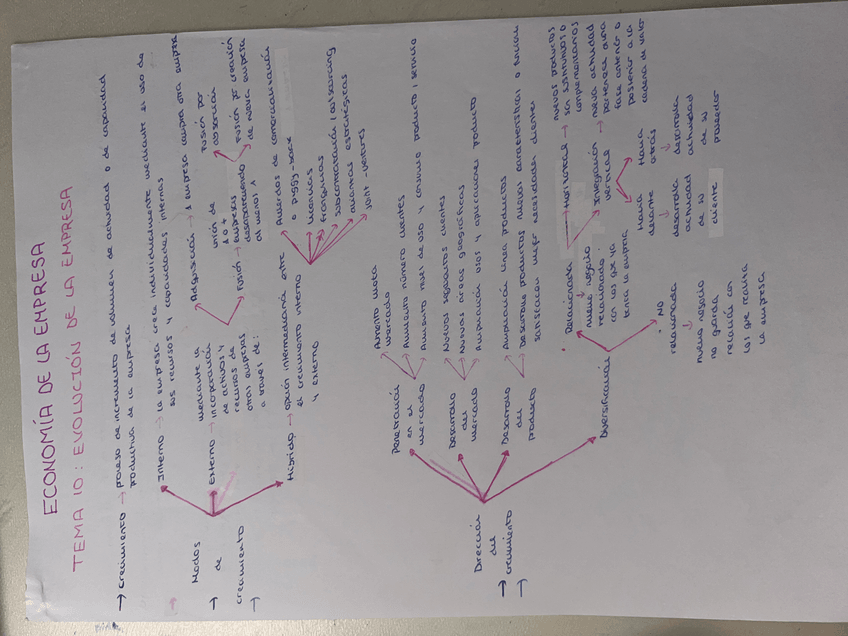 ECONOMÍA DE LA EMPRESA
TEMA 10: EVOLUCIÓN DE LA EMPRESA
→ Crecimiento → proceso de incremento de volumen de actividad o de capacidad
productiva de la empresa
→ Modos
de
crecimiento
Interno → la empresa crece individualmente mediante el uso de
sus recursos y capacidades internas
Externo → mediante la
incorporación
de activos y
recursos de
otras empresas
a través de:
Adquisición → 1 empresa compra otra empresa
Fusión → unión de
2 o +
empresas
desapareciendo
al menos 1
Fusión por
absorción
Fusión por creación
de nueva empresa
Híbrido → opción intermediaria entre
el crecimiento interno
y externo
Acuerdos de comercialización
o piggy-back
Licencias
Franquicias
Subcontratación / outsourcing
alianzas estratégicas
Joint-ventures
→ Dirección
del
crecimiento
Penetración
en el
mercado
Aumento cuota
mercado
Aumento número clientes
Aumento nivel de uso y consumo producto / servicio
Desarrollo
del
mercado
Nuevos segmentos clientes
Nuevas áreas geográficas
Ampliación usos y aplicaciones producto
Desarrollo
del
producto
Ampliación línea productos
Desarrollo productos nuevas características
satisfacción mejor necesidades clientes
Diversificación
Relacionada
↓
nuevo negocio
relacionado
con los que ya
tenía la empresa
Horizontal → nuevos productos
son sustitutivos o
complementarios
Integración
vertical
→ nueva actividad
pertenece a una
fase anterior o
posterior a la
cadena de valor
Hacia
delante
↓
desarrolla
actividad
de su
cliente
Hacia
atrás
↓
desarrolla
actividad
de su
proveedor
No
relacionada
↓
nuevo negocio
no guarda
relación con
los que realiza
la empresa